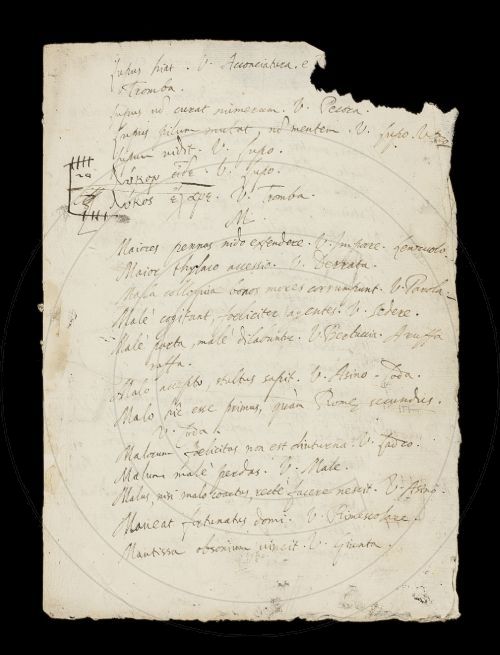 Lupus hiat. V. Acconciatura, e
Tromba.
Lupus nō curat numerum. V. Pecora.
Lupus pilum mutat, nō mentem. V. Lupo.
Lupum vidit. V. Lupo.
λύκον εἶδε. V. Lupo.
λύκος V. Tromba.
M.
Maiores pennas nido extendere. V.
Maior thylaco accessio. V. Derrata.
Mala colloquia bonos mores corrumpunt. V. Parola
Malè cogitant, foeliciter agentes. V. Sedere.
Malè parta, malè dilabuntur. V. Aruffa
raffa.
Malo accepto, stultus sapit. V. Asino. Toda.
Malo hîc esse primus, quàm Romę secundus.
V. Toda.
Malorum foelicitas non est diuturna. V. Ladro.
Malum malè perdas. V. Male.
Malus, nisi malo coactus, rectè facere nescit. V. Asino.
Maneat fortunatus domi. V. Rimescolare.
Mantissa obsonium vincit. V. Giunta.